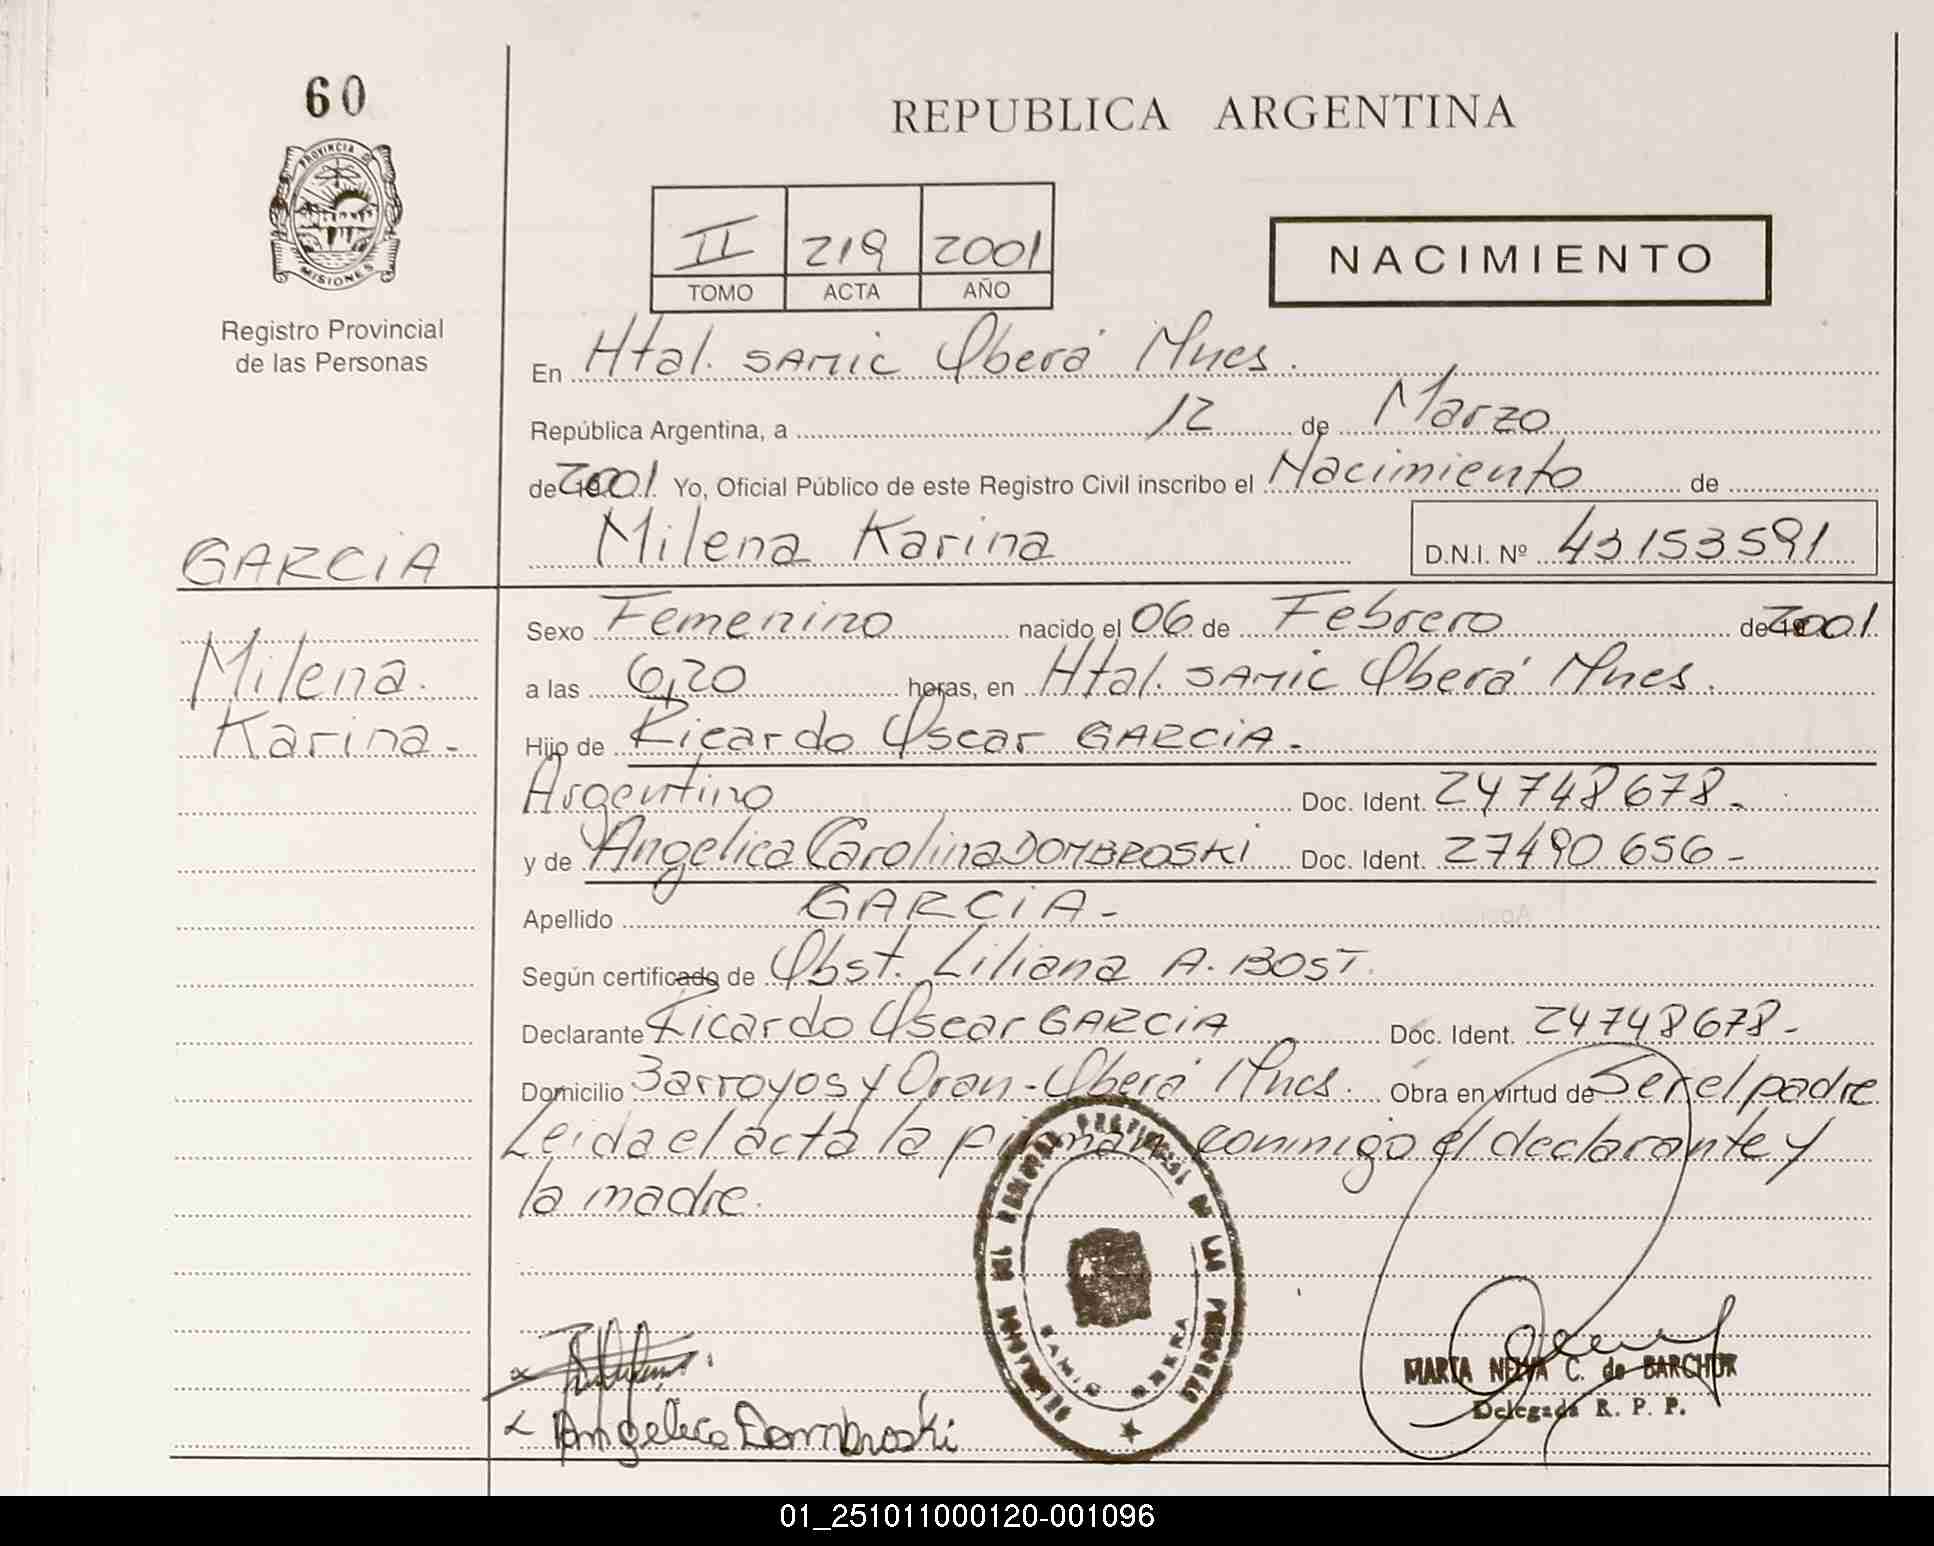 60
PROVINCIA DE
MISIONES
Registro Provincial
de las Personas
REPUBLICA ARGENTINA
II 219 2001
TOMO ACTA AÑO
NACIMIENTO
En Htal. SAMIC Oberá Mnes.
República Argentina, a 12 de Marzo
de 2001. Yo, Oficial Público de este Registro Civil inscribo el Nacimiento de
Milena Karina D.N.I. Nº 43153591
GARCIA
Milena
Karina.-
Sexo Femenino nacido el 06 de Febrero de 2001.
a las 6,20 horas, en Htal. SAMIC Oberá Mnes.
Hijo de Ricardo Oscar GARCIA.-
Argentino Doc. Ident. 24748678.-
y de Angelica Carolina DOMBROSKI Doc. Ident. 27490656-
Apellido GARCIA-
Según certificado de Obst. Liliana A. BOST.
Declarante Ricardo Oscar GARCIA Doc. Ident. 24748678-
Domicilio Barroyos y Oran-Oberá Mnes. Obra en virtud de Ser el padre
Leida el acta la firman conmigo el declarante y
la madre.
REGISTRO PROVINCIAL DE LAS PERSONAS
SAMIC OBERA
MARTA NELVA C. de BARCHUK
Delegada R. P. P.
Angelica Dombroski
01_251011000120-001096